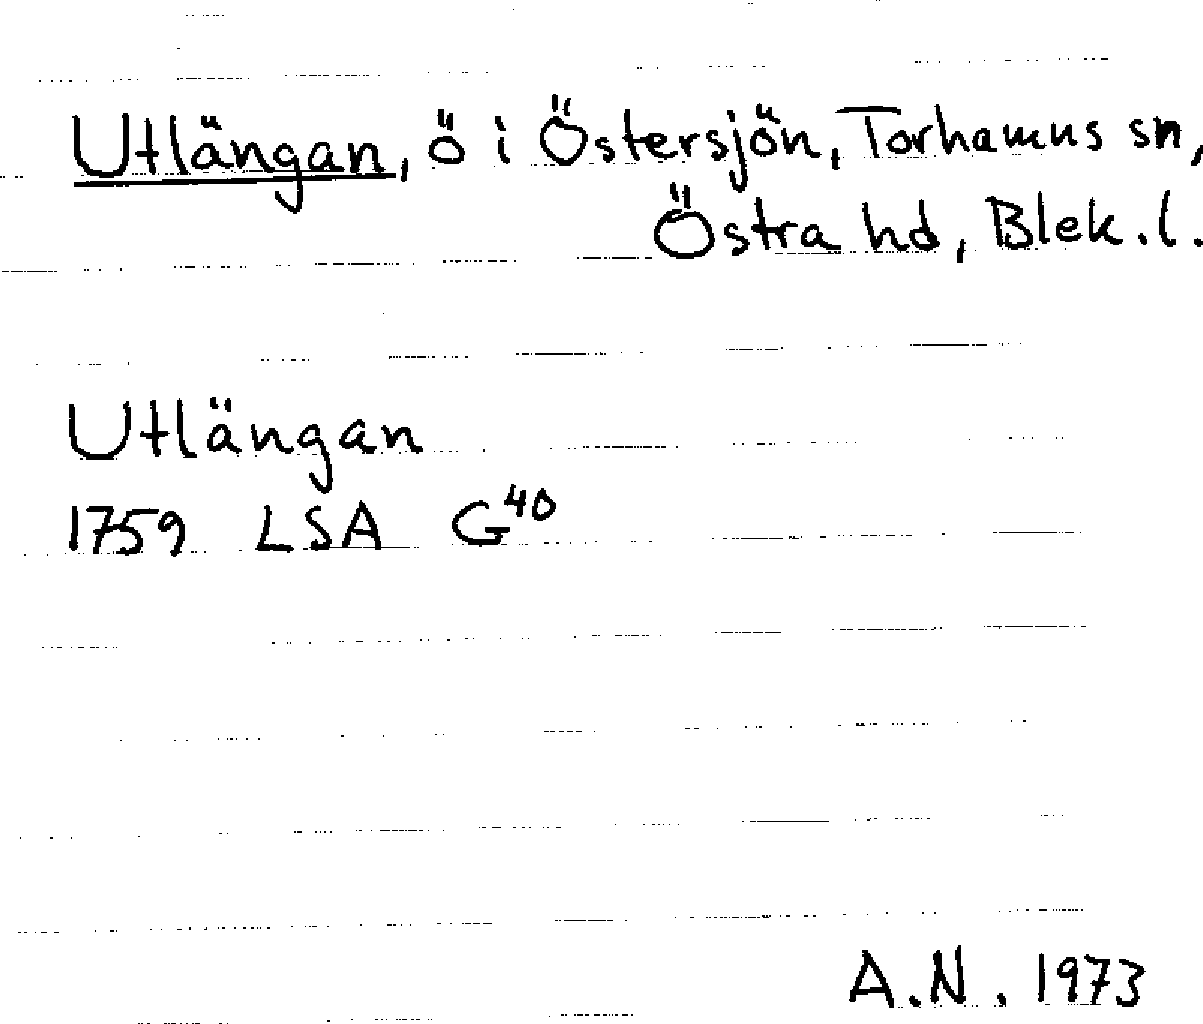 Utlängan, ö i Östersjön, Torhamns sn,
Östra hd, Blek. l.
Utlängan
1759 LSA G40
A.N. 1973